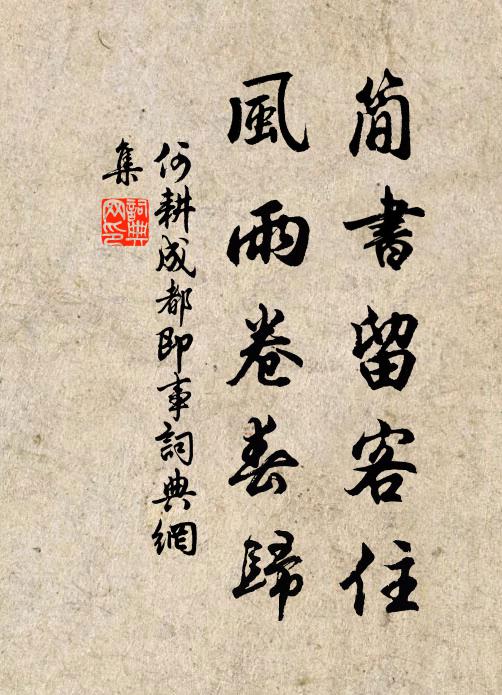 簡書留客住
風雨卷春歸
何耕成都即事詞典網
集
詞典
网印